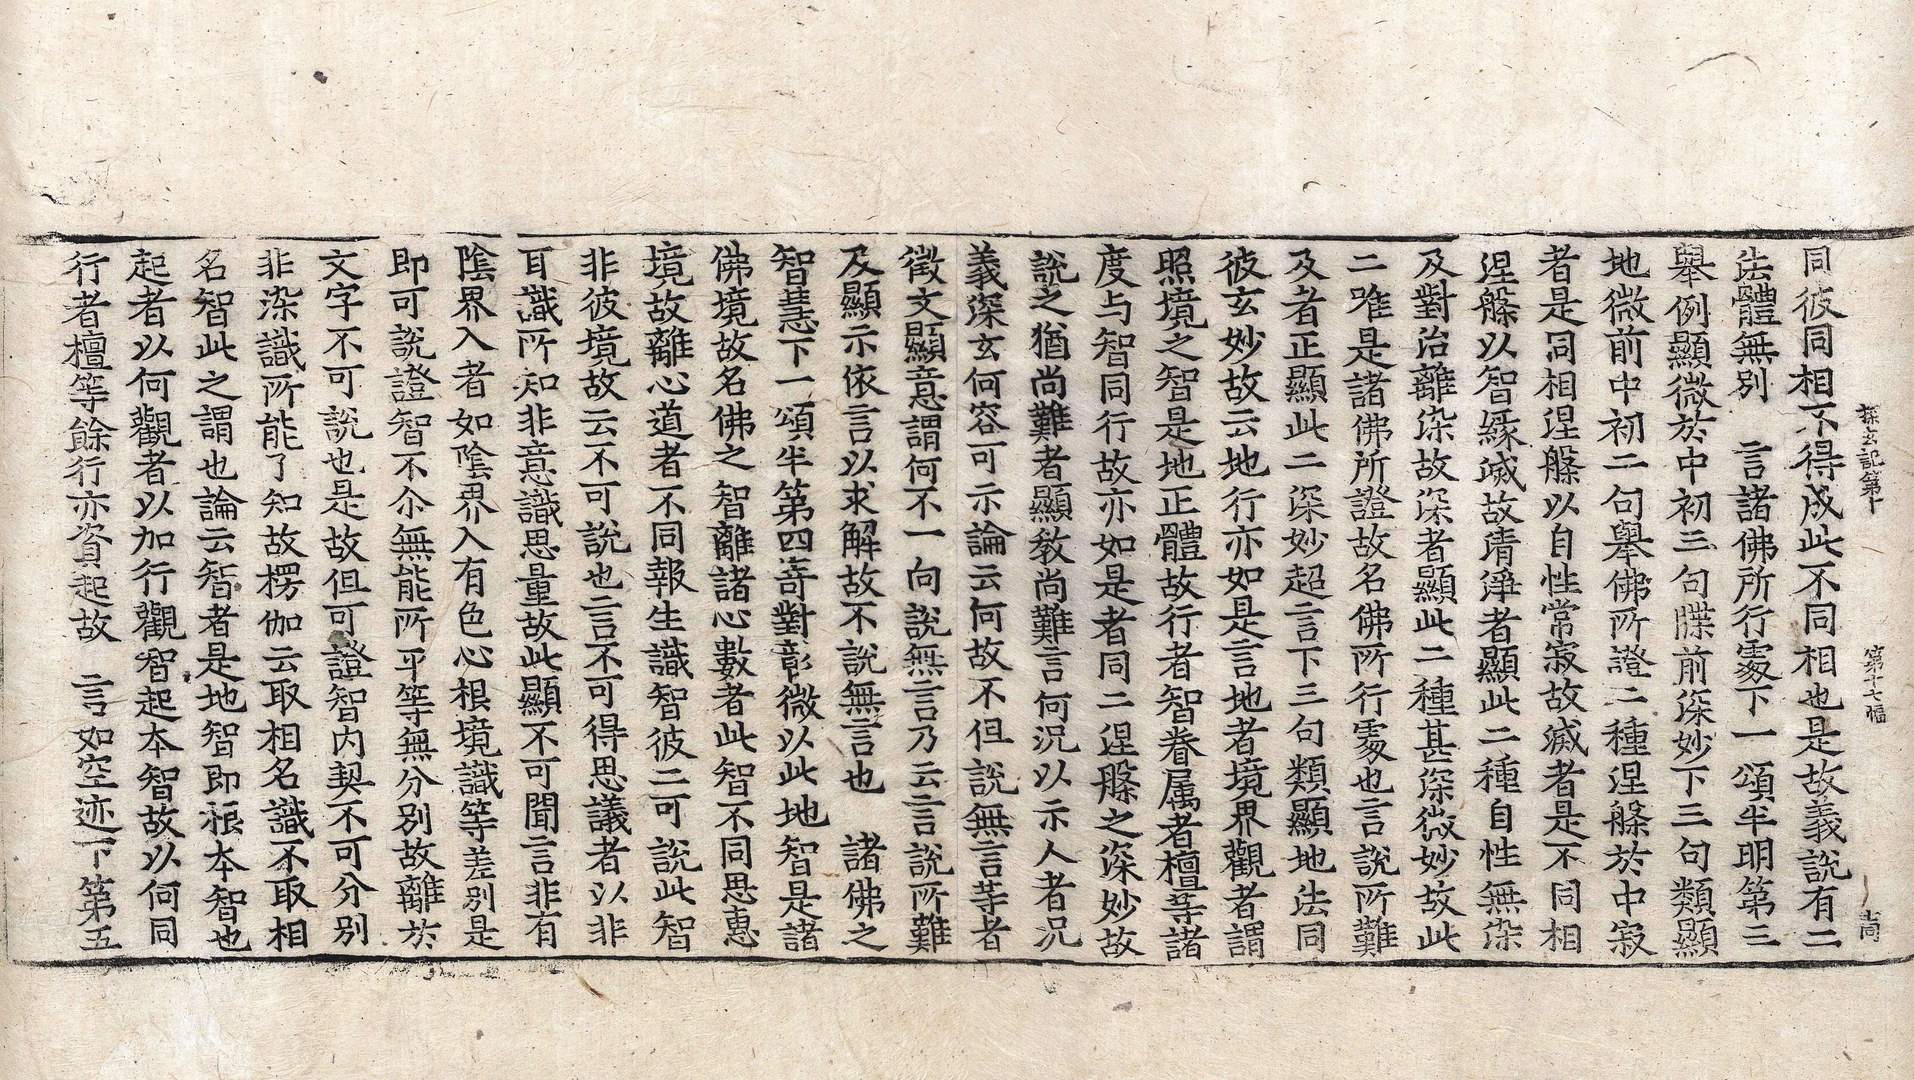 探玄記第十 第十七幅 尚
同彼同相不得成此不同相也是故義說有二
法體無別 言諸佛所行處下一頌半明第三
舉例顯微於中初三句牒前深妙下三句類顯
地微前中初二句舉佛所證二種涅槃於中寂
者是同相涅槃以自性常寂故滅者是不同相
涅槃以智緣滅故清淨者顯此二種自性無染
及對治離染故深者顯此二種甚深微妙故此
二唯是諸佛所證故名佛所行處也言說所難
及者正顯此二深妙超言下三句類顯地法同
彼玄妙故云地行亦如是言地者境界觀者謂
照境之智是地正體故行者智眷属者檀等諸
度与智同行故亦如是者同二涅槃之深妙故
說之猶尚難者顯教尚難言何況以示人者況
義深玄何容可示論云何故不但說無言等者
徵文顯意謂何不一向說無言乃云言說所難
及顯示依言以求解故不說無言也 諸佛之
智慧下一頌半第四寄對彰微以此地智是諸
佛境故名佛之智離諸心數者此智不同思惠
境故離心道者不同報生識智彼二可說此智
非彼境故云不可說也言不可得思議者以非
耳識所知非意識思量故此顯不可聞言非有
陰界入者如陰界入有色心根境識等差別是
即可說證智不尒無能所平等無分別故離於
文字不可說也是故但可證智内契不可分別
非染識所能了知故楞伽云取相名識不取相
名智此之謂也論云智者是地智即根本智也
起者以何觀者以加行觀智起本智故以何同
行者檀等餘行亦資起故 言如空迹下第五